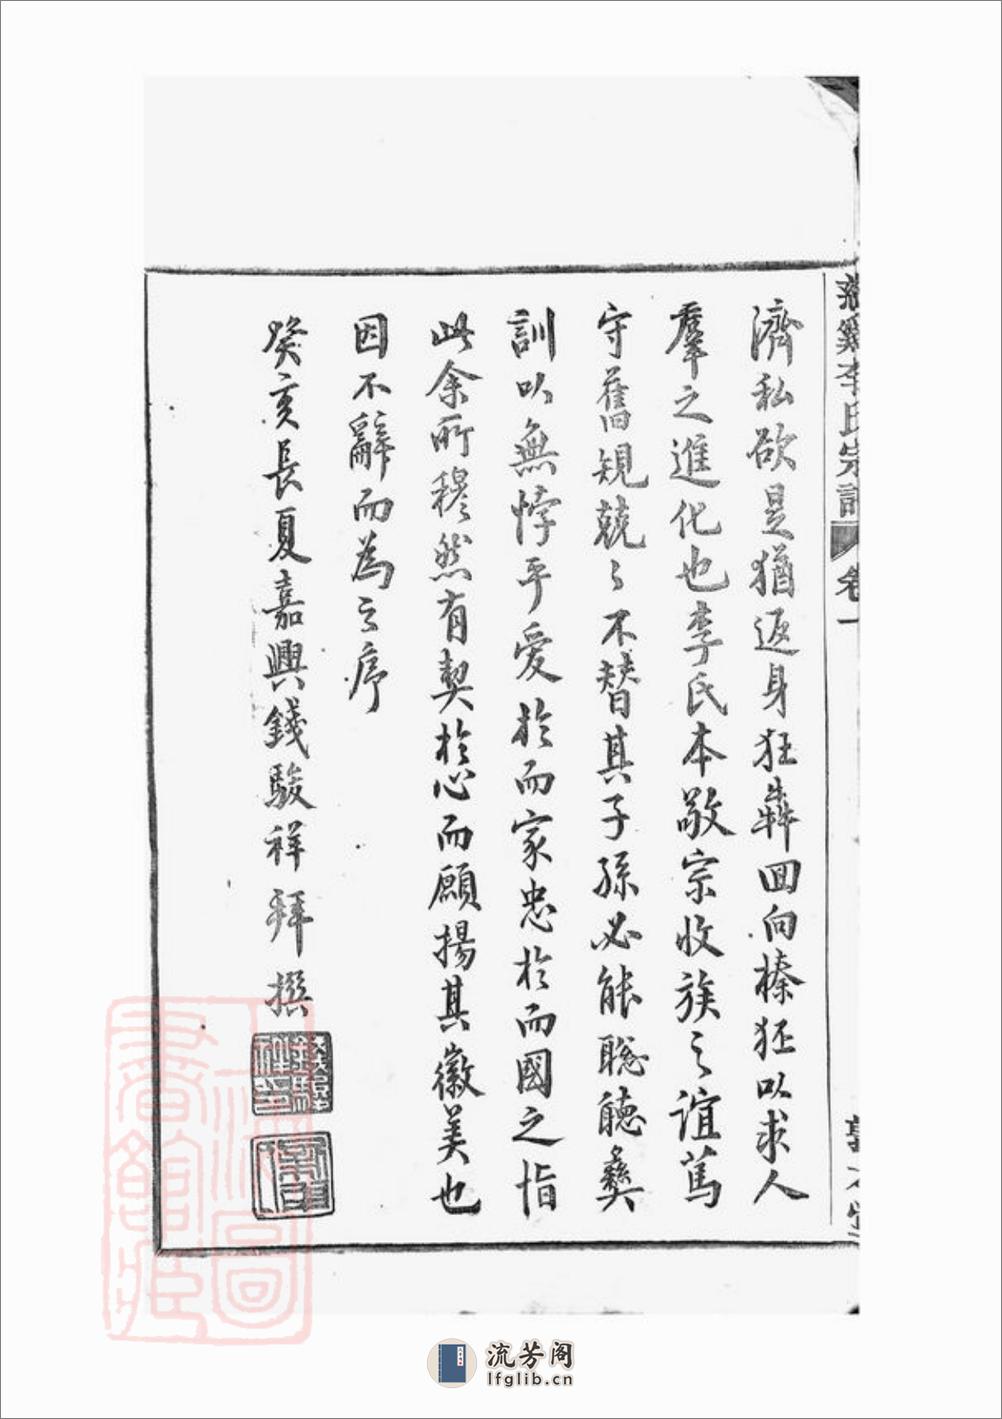 李氏宗譜 卷一
濟私欲是猶返身狂犇回向榛狉以求人
羣之進化也李氏本敬宗收族之誼篤
守舊規兢兢不替其子孫必能聰聽彝
訓以無悖乎愛於而家忠於而國之恉
此余所穆然有契於心而願揚其徽美也
因不辭而為之序
癸亥長夏嘉興錢駿祥拜撰
錢駿祥印
上海圖書館藏
流芳阁
lfglib.cn